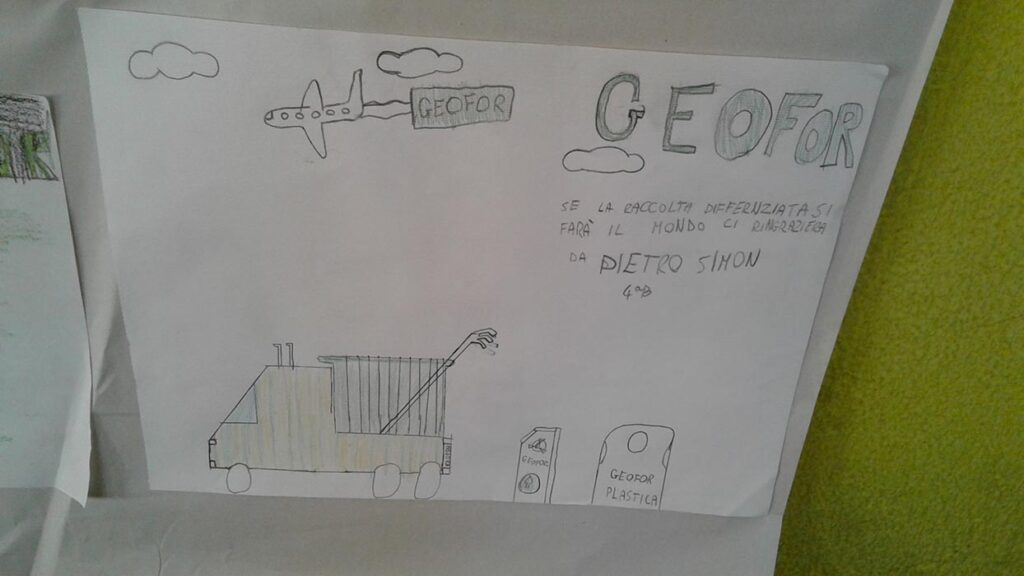 GEOFOR
GEOFOR
SE LA RACCOLTA DIFFERNZIATA SI
FARÀ IL MONDO CI RINGRAZIERÀ
DA PIETRO SIMON
4ªB
GEOFOR
GEOFOR
PLASTICA